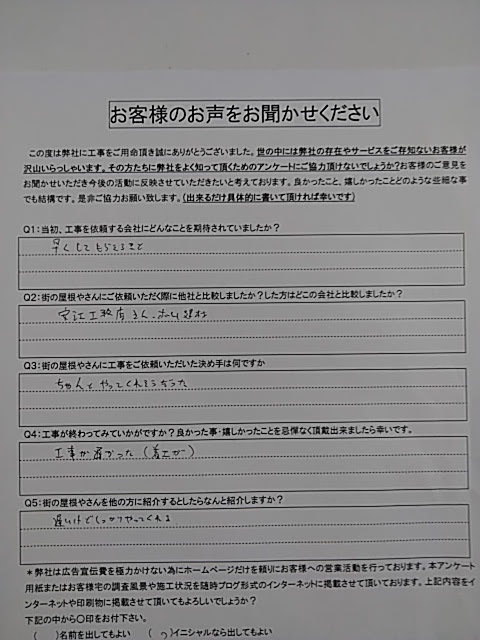 お客様のお声をお聞かせください
この度は弊社に工事をご用命頂き誠にありがとうございました。世の中には弊社の存在やサービスをご存知ないお客様が
沢山いらっしゃいます。その方たちに弊社をよく知って頂くためのアンケートにご協力頂けないでしょうか?お客様のご意見を
お聞かせいただき今後の活動に反映させていただきたいと考えております。良かったこと、嬉しかったことどのような些細な事
でも結構です。是非ご協力お願い致します。(出来るだけ具体的に書いて頂ければ幸いです)
Q1:当初、工事を依頼する会社にどんなことを期待されていましたか?
早くしてもらえること
Q2:街の屋根やさんにご依頼いただく際に他社と比較しましたか?した方はどこの会社と比較しましたか?
工務店さん、
Q3:街の屋根やさんに工事をご依頼いただいた決め手は何ですか
ちゃんとやってくれそうだった
Q4:工事が終わってみていかがですか?良かった事・嬉しかったことを忌憚なく頂戴出来ましたら幸いです。
工事が遅かった(着工が)
Q5:街の屋根やさんを他の方に紹介するとしたらなんと紹介しますか?
遅いけどしっかりやってくれる
*弊社は広告宣伝費を極力かけない為にホームページだけを頼りにお客様への営業活動を行っております。本アンケート
用紙またはお客様宅の調査風景や施工状況を随時ブログ形式のインターネットに掲載させて頂いております。上記内容をイ
ンターネットや印刷物に掲載させて頂いてもよろしいでしょうか?
下記の中から〇印をお付下さい。
( )名前を出してもよい ( )イニシャルなら出してもよい